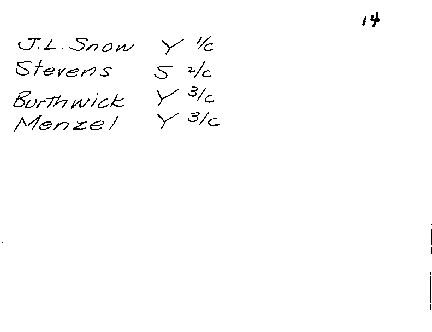 14
J.L. Snow Y 1/c
Stevens S 2/c
Burthwick Y 3/c
Menzel Y 3/c